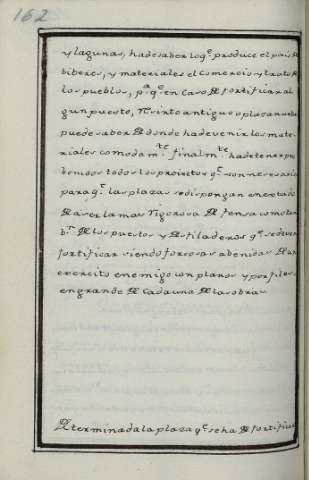 162
y lagunas, ha de saber lo q.e produce el pais de
biberes, y materiales el Comercio y trato de
los pueblos, p.a q.e en Caso de fortificar al
gun puesto, recinto antiguo o plaza nueba
puede saber de donde ha de venir los mate-
riales comodam.te finalm.te ha de tener pre
benidos todos los proiectos q.e son necesarios
para q.e las plazas se dispongan en estado
de aser la mas rigorosa defensa como tam
b.n de los puestos y desfiladeros q.e se deven
fortificar siendo forcosas abenidas de un
exercito enemigo con planos y perfiles
en grande de Cada una de las obras
Determinada la plaza q.e se ha de fortificar